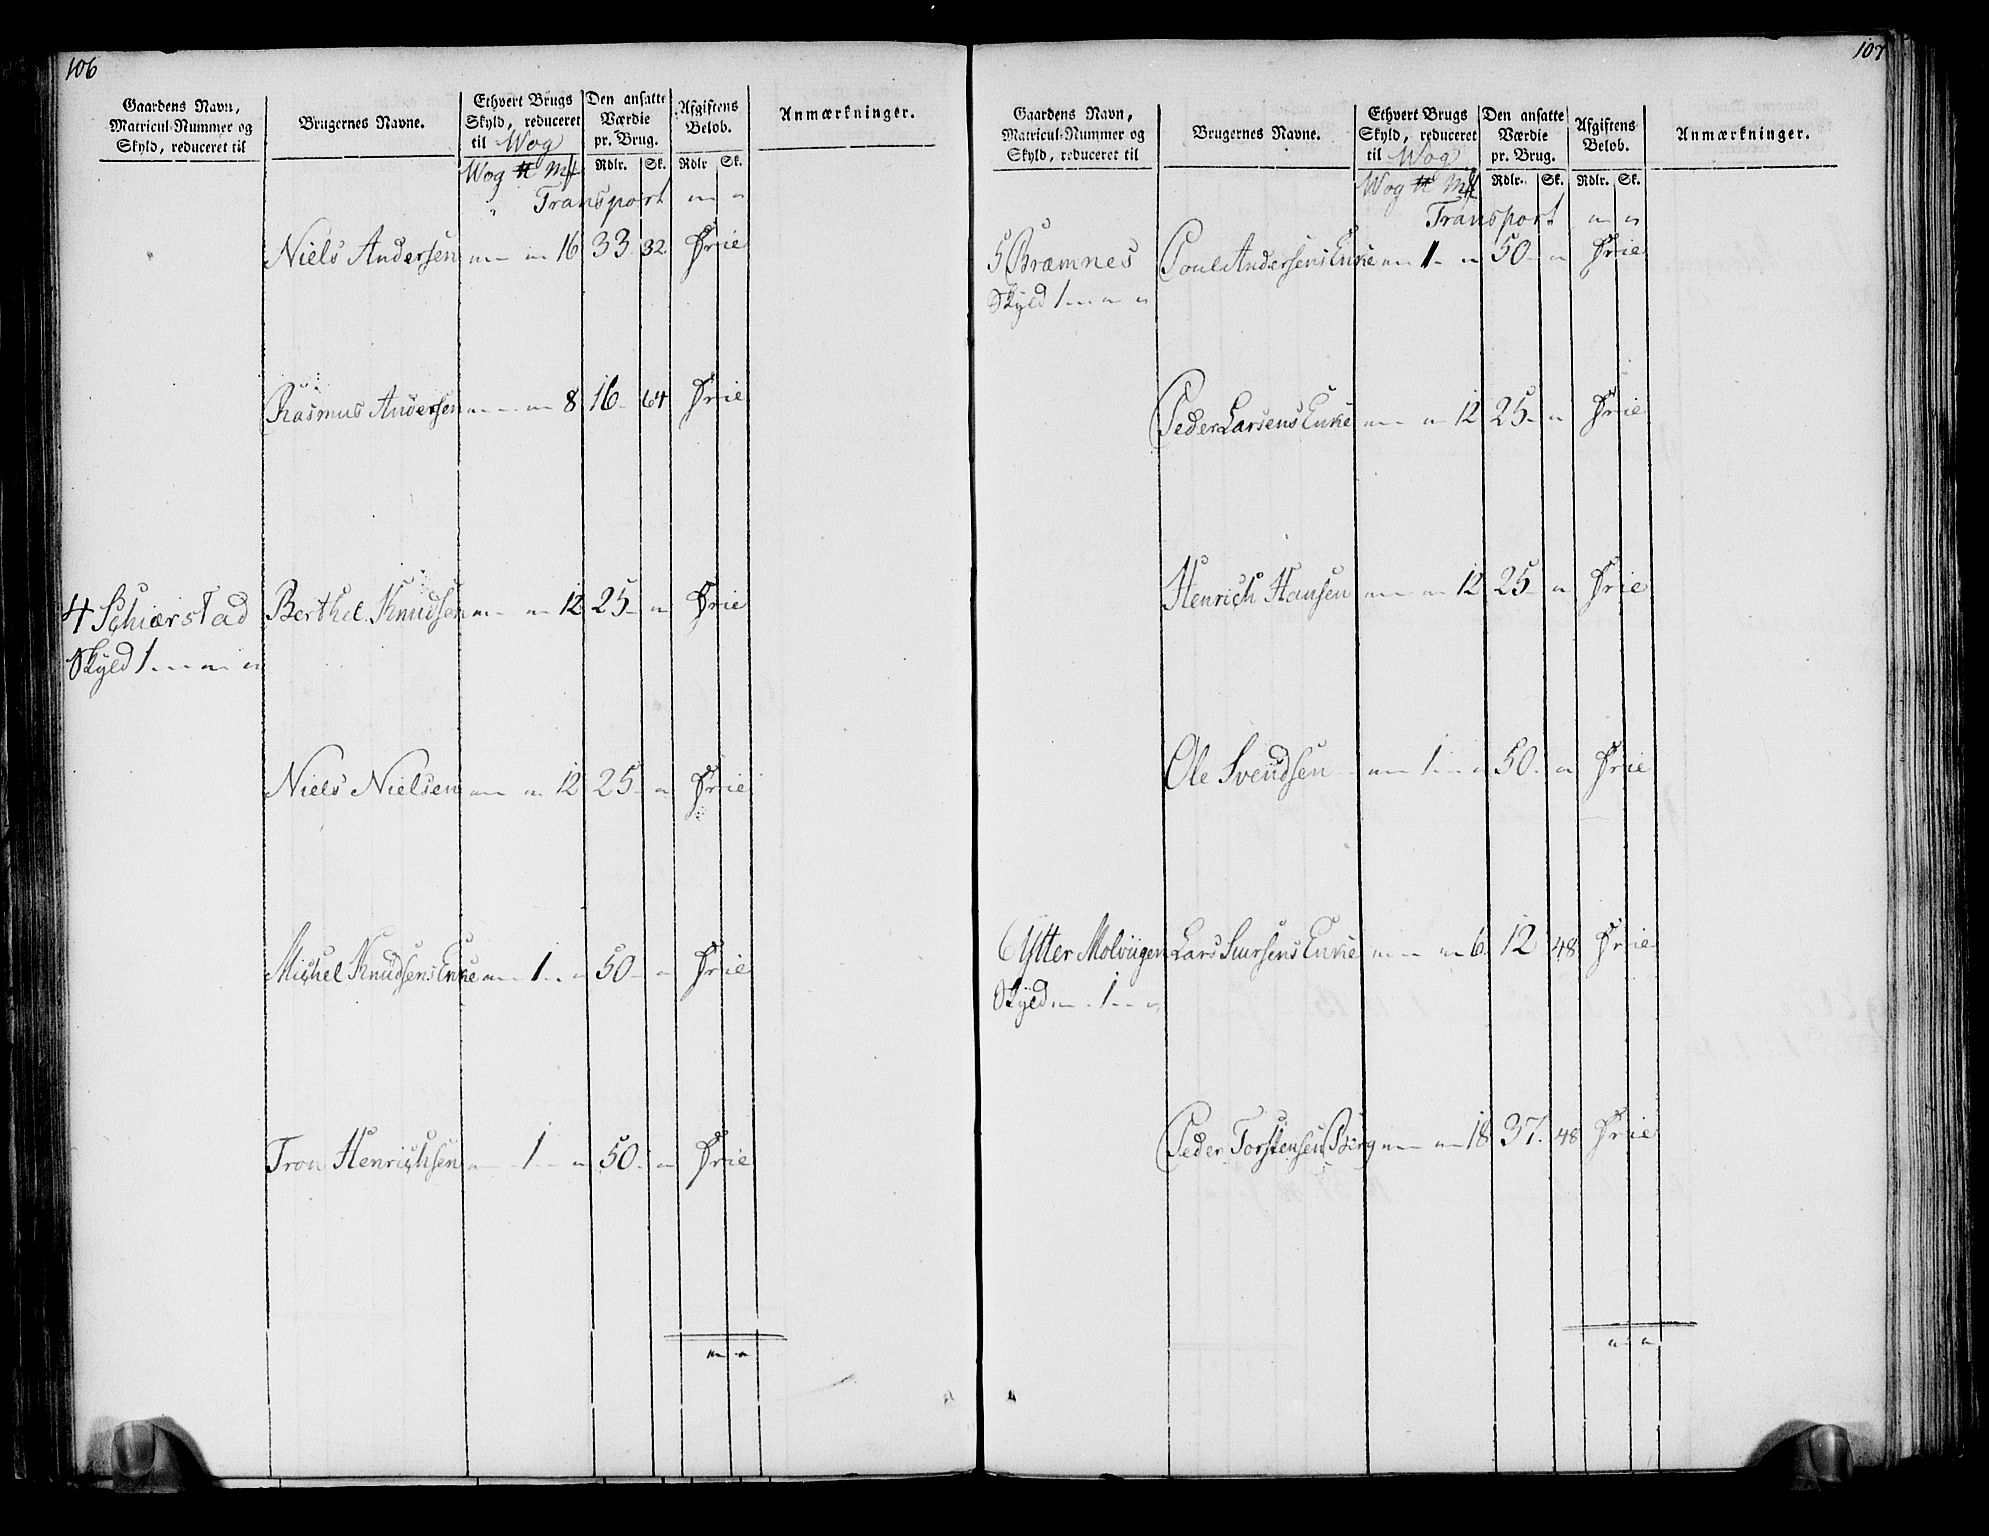 106
Gaardens Navn, Matricul-Nummer og Skyld, reduceret til
Brugernes Navne.
Ethvert Brugs Skyld, reduceret til Wog
Den ansatte Værdie pr. Brug.
Afgiftens Beløb.
Anmærkninger.
Wog ℔ Mk Rdlr. Sk. Rdlr Sk.
" Transport " "
Niels Andersen " " 16 33 32 Frie
Rasmus Andersen " " 8 16 64 Frie
4 Schierstad Berthel Knudsen " " 12 25 " Frie
Skyld 1 " "
Niels Nielsen " " 12 25 " Frie
Michel Knudsens Enke " 1 " 50 " Frie
Tron Henrichsen " 1 " 50 " Frie
" "
107
Gaardens Navn, Matricul-Nummer og Skyld, reduceret til
Brugernes Navne.
Ethvert Brugs Skyld, reduceret til Wog
Den ansatte Værdie pr. Brug.
Afgiftens Beløb.
Anmærkninger.
Wog ℔ Mk Rdlr. Sk. Rdlr. Sk.
Transport " "
5 Bræmnes Poul Andersens Enke " 1 " 50 " Frie
Skyld 1 " "
Peder Larsens Enke " " 12 25 " Frie
Henrich Hansen " " 12 25 " Frie
Ole Svendsen " 1 " 50 " Frie
6 Ytter Molviigen Lars Enke " " 6 12 48 Frie
Skyld " 1 "
Peder Torstensen Berg " " 18 37 48 Frie
" "